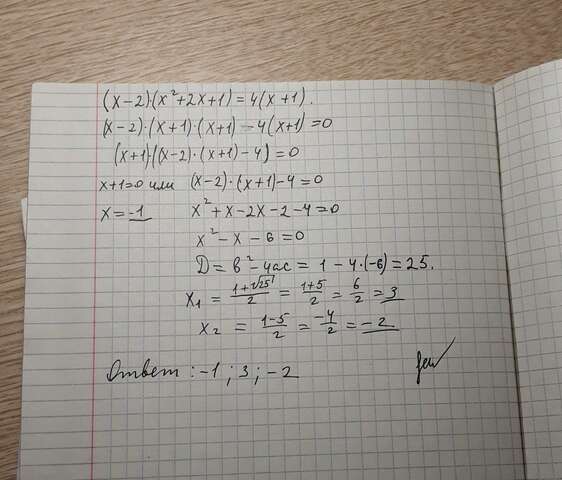 (x-2)·(x²+2x+1)=4(x+1).
(x-2)·(x+1)·(x+1)-4(x+1)=0
(x+1)·((x-2)·(x+1)-4)=0
x+1=0 или (x-2)·(x+1)-4=0
x=-1 x²+x-2x-2-4=0
x²-x-6=0
D=b²-4ac=1-4·(-6)=25.
x₁=(1+√25)/2=(1+5)/2=6/2=3
x₂=(1-5)/2=-4/2=-2
Ответ:-1;3;-2